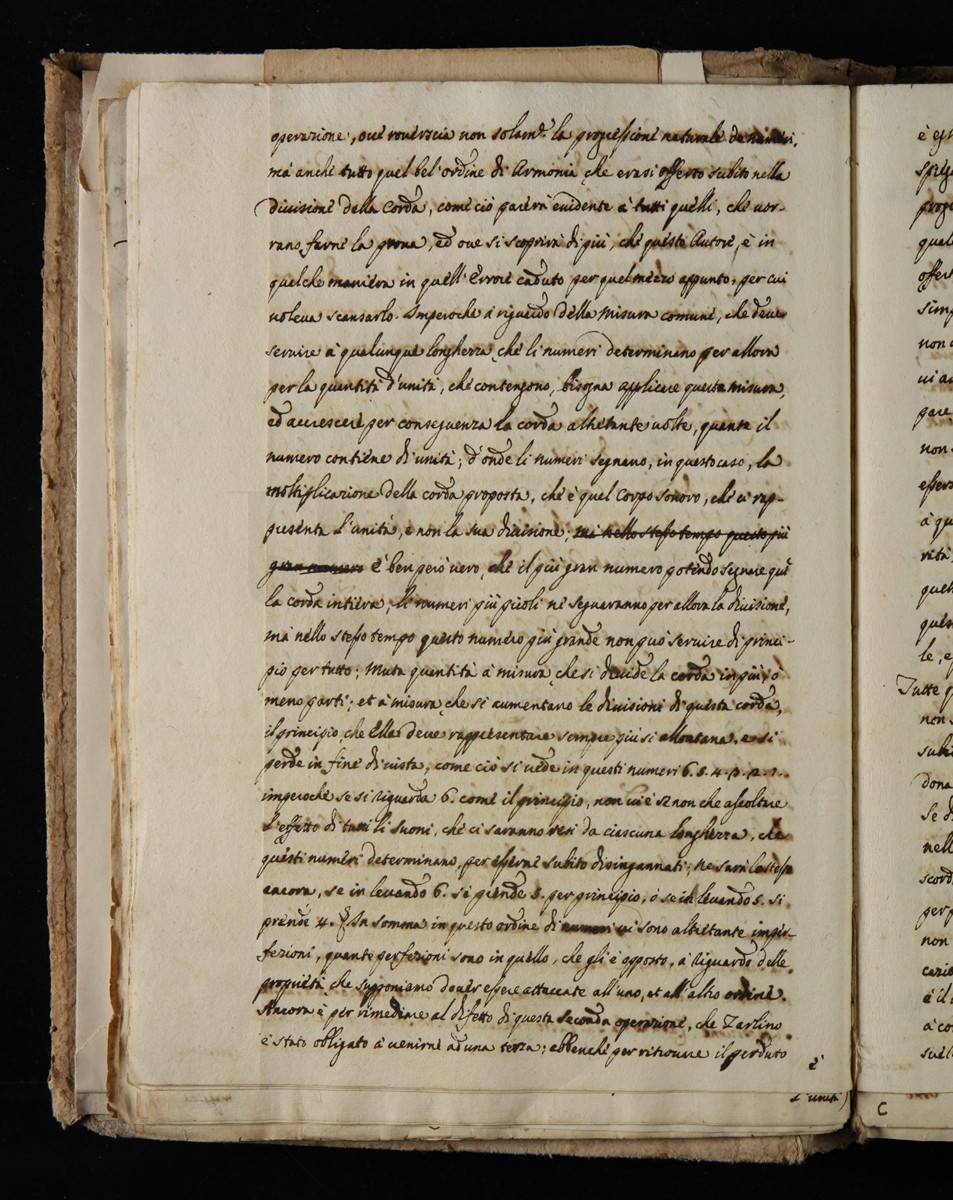 operazione, ove rovescia non solam.e la progressione naturale de numeri,
mà anche tutto quel bel'ordine di Armonia, che erasi offerto subito nella
divisione della Corda, come ciò parerà evidente à tutti quelli, che vor-
rano farne la prova, ed ove si scoprirà di più, che questo Autore, è in
qualche maniera in quell'Errore caduto per quel mezzo appunto, per cui
voleva scansarlo. Imperoche à riguardo della misura comune, che deve
servire à qualunque longhezza, che li numeri determinano per allora
per la quantità d'unità, che contengono, bisogna applicare questa misura,
ed accrescere per conseguenza la corda altretante volte, quante il
numero contiene di unità; d'onde li numeri segnano, in questo caso, la
moltiplicazione della corda proposta, che è quel Corpo sonoro, che ci rap-
presenta l'unità, e non la sua divisione; mà nello stesso tempo questo più
gran numero è ben però vero, che il più gran numero potendo segnare quì
la corda intiera, li numeri più picoli ne segneranno per allora la divisione,
mà nello stesso tempo questo numero più grande non può servire di princi-
pio per tutto; Muta quantità à misura, che si divide la corda in più, ò
meno parti; et à misura, che si aumentano le divisioni di questa corda,
il principio, che Ella deve rappresentare sempre più si allontana, e si
perde in fine di vista, come ciò si vede in questi numeri 6. 5. 4. 3. 2. 1.
imperoche se si riguarda 6. come il principio, non vi è se non che ascoltare
l'effetto di tutti li Suoni, che ci saranno resi da ciascuna longhezza, che
questi numeri determinano, per esserne subito disingannati; ne sarà lo stesso
ancora, se in levando 6. si prende 5. per principio, ò se in levando 5. si
prende 4. &. In somma in questo ordine di numeri vi sono altretante imper-
fezioni, quante perfezioni sono in quello, che gli è opposto, à riguardo delle
proprietà, che supponiamo dover essere attaccate all'uno, et all'altro ordine.
Ancora è per rimediare al difetto di questa seconda operazione, che Zarlino
è stato obligato à venirne ad una terza; abbenche per ritrovare il perduto
è
l'unità)
è
non
à
le, e
Tutte
non
C